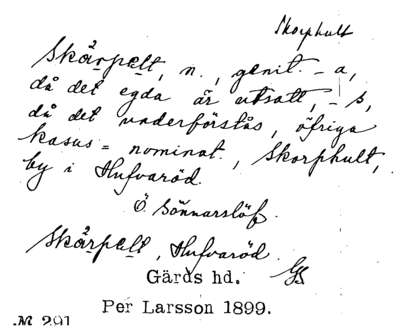 Skorphult
Skärpelt, n., genit. -a,
då det egda är utsatt, -s,
då det underförstås, öfriga
kasus = nominat., Skorphult,
by i Hufvaröd.
Ö. Sönnarslöf.
Skärpelt, Hufvaröd.
Gärds hd. GS
Per Larsson 1899.
№ 291